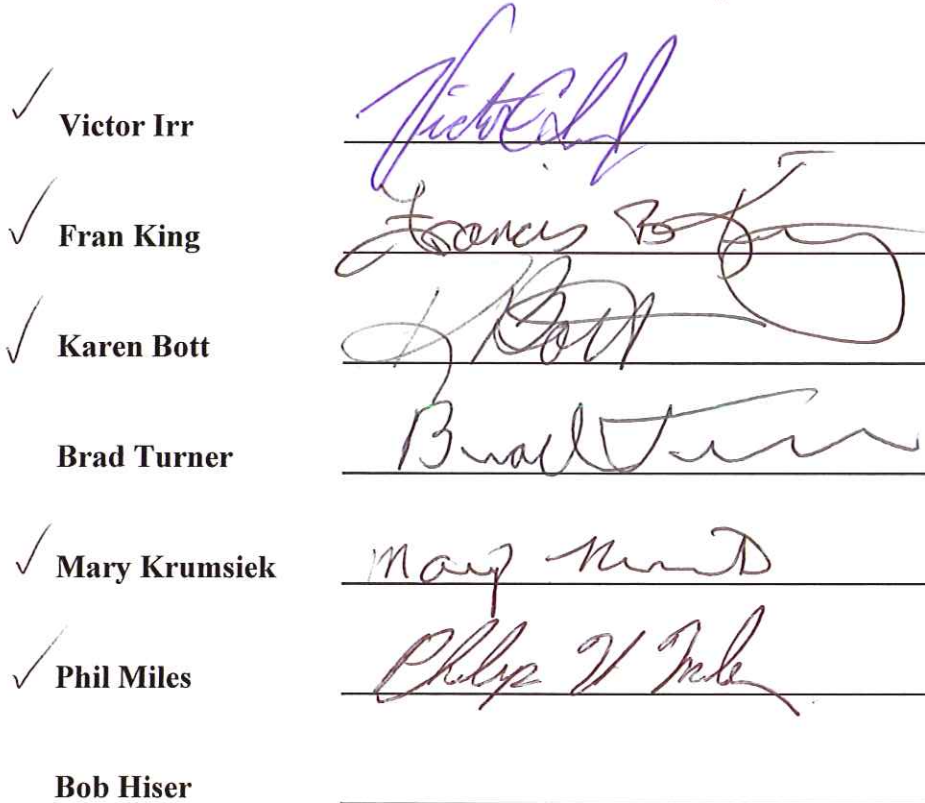 ✓ Victor Irr
✓ Fran King Francis B King
✓ Karen Bott K Bott
Brad Turner Brad Turner
✓ Mary Krumsiek Mary
✓ Phil Miles Philip V Miles
Bob Hiser